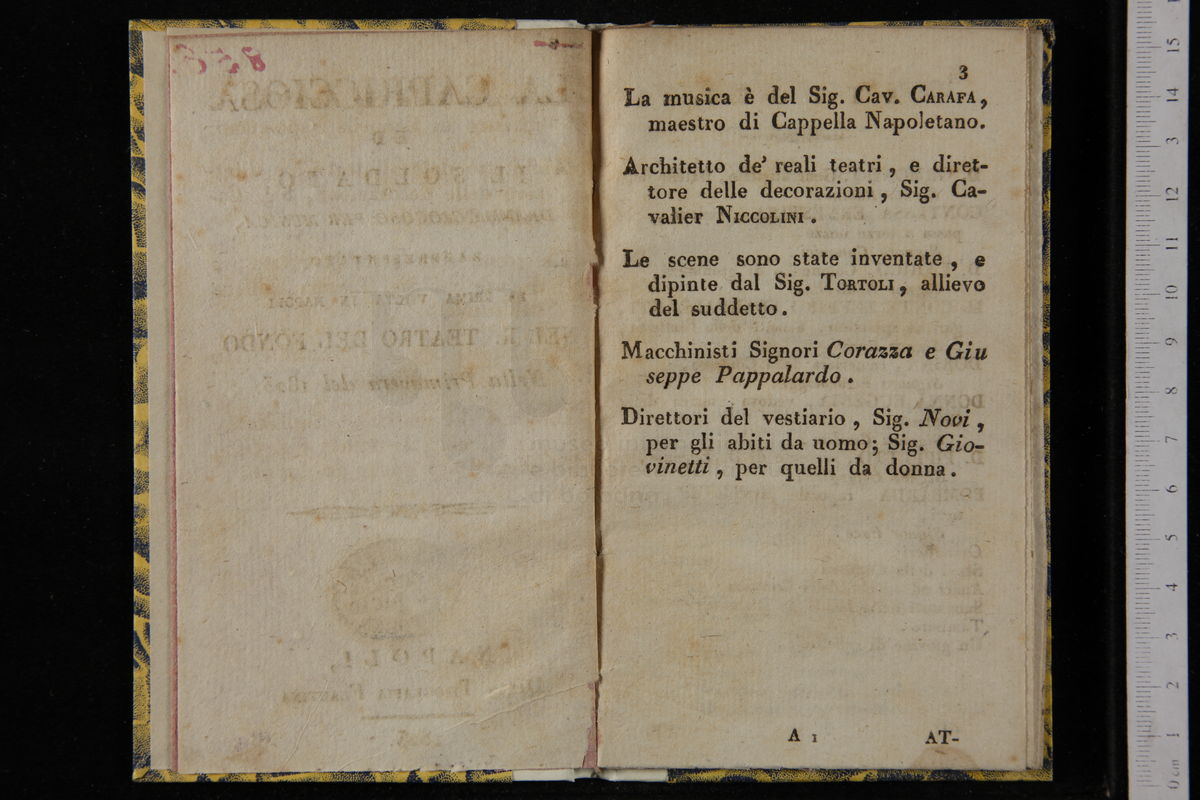 3
La musica è del Sig. Cav. CARAFA,
maestro di Cappella Napoletano.
Architetto de' reali teatri, e diret-
tore delle decorazioni, Sig. Ca-
valier NICCOLINI.
Le scene sono state inventate, e
dipinte dal Sig. TORTOLI, allievo
del suddetto.
Macchinisti Signori Corazza e Giu
seppe Pappalardo.
Direttori del vestiario, Sig. Novi,
per gli abiti da uomo; Sig. Gio-
vinetti, per quelli da donna.
A 1 AT-
0 cm 1 2 3 4 5 6 7 8 9 10 11 12 3 14 15